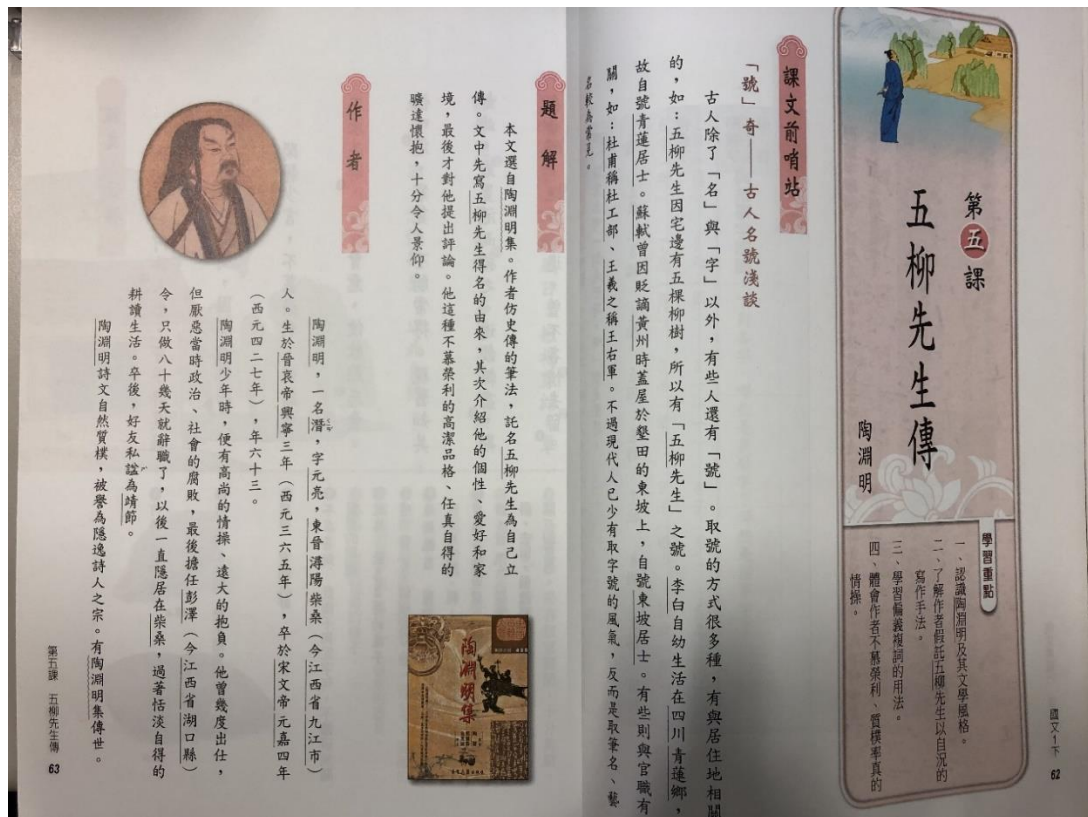 第五課
五柳先生傳
陶淵明
學習重點
一、認識陶淵明及其文學風格。
二、了解作者假託五柳先生以自況的
寫作手法。
三、學習偏義複詞的用法。
四、體會作者不慕榮利、質樸率真的
情操。
國文1下
62
課文前哨站
「號」奇——古人名號淺談
古人除了「名」與「字」以外,有些人還有「號」。取號的方式很多種,有與居住地相關
的,如:五柳先生因宅邊有五棵柳樹,所以有「五柳先生」之號。李白自幼生活在四川青蓮鄉,
故自號青蓮居士。蘇軾曾因貶謫黃州時蓋屋於墾田的東坡上,自號東坡居士。有些則與官職有
關,如:杜甫稱杜工部、王羲之稱王右軍。不過現代人已少有取字號的風氣,反而是取筆名、藝
名較為常見。
題解
本文選自陶淵明集。作者仿史傳的筆法,託名五柳先生為自己立
傳。文中先寫五柳先生得名的由來,其次介紹他的個性、愛好和家
境,最後才對他提出評論。他這種不慕榮利的高潔品格、任真自得的
曠達懷抱,十分令人景仰。
陶淵明集
作者
陶淵明,一名潛,字元亮,東晉潯陽柴桑(今江西省九江市)
人。生於晉哀帝興寧三年(西元三六五年),卒於宋文帝元嘉四年
(西元四二七年),年六十三。
陶淵明少年時,便有高尚的情操、遠大的抱負。他曾幾度出仕,
但厭惡當時政治、社會的腐敗,最後擔任彭澤(今江西省湖口縣)
令,只做八十幾天就辭職了,以後一直隱居在柴桑,過著恬淡自得的
耕讀生活。卒後,好友私諡為靖節。
陶淵明詩文自然質樸,被譽為隱逸詩人之宗。有陶淵明集傳世。
第五課 五柳先生傳
63